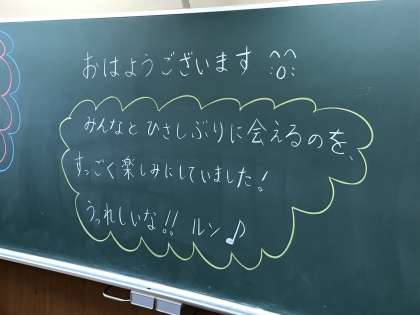 おはようございます
みんなとひさしぶりに会えるのを、
すっごく楽しみにしていました!
うっれしいな!! ルン♪